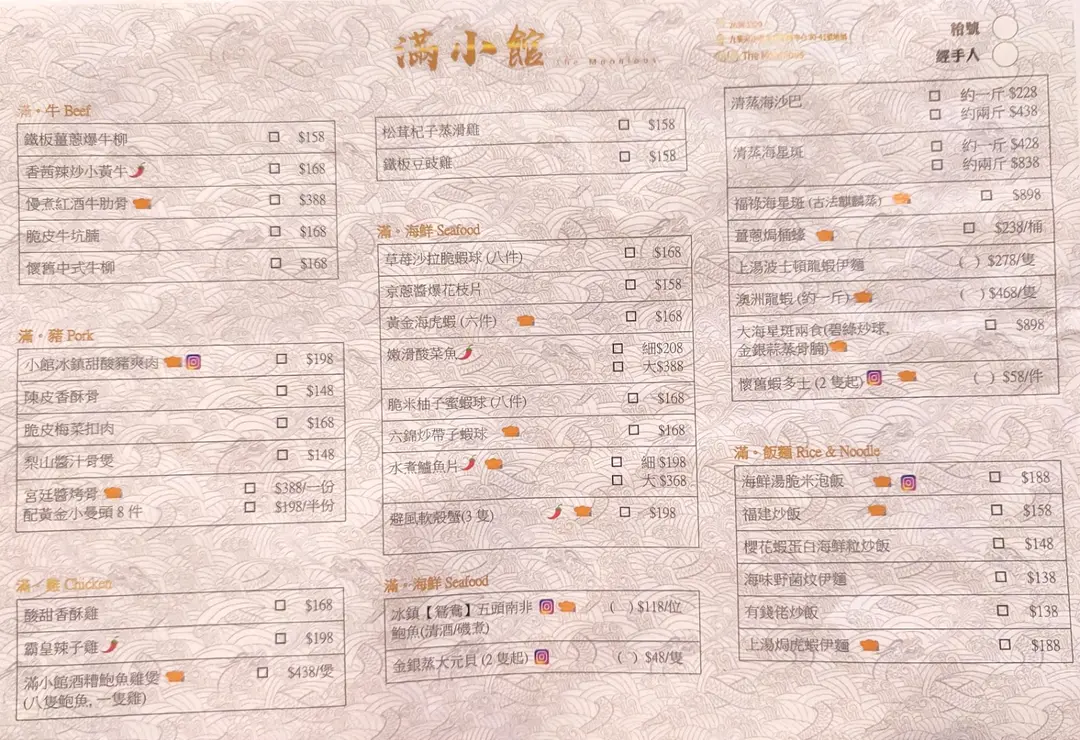 滿小館
The Moonious
枱號
經手人
滿•牛 Beef
鐵板薑蔥爆牛柳 $158
香茜辣炒小黃牛 $168
慢煮紅酒牛肋骨 $388
脆皮牛坑腩 $168
懷舊中式牛柳 $168
滿•豬 Pork
小館冰鎮甜酸豬爽肉 $198
陳皮香酥骨 $148
脆皮梅菜扣肉 $168
梨山醬汁骨煲 $148
宮廷醬烤骨 $388/一份
配黃金小曼頭 8 件 $198/半份
滿•雞 Chicken
酸甜香酥雞 $168
霸皇辣子雞 $198
滿小館酒糟鮑魚雞煲 $438/煲
(八隻鮑魚, 一隻雞)
松茸杞子蒸滑雞 $158
鐵板豆豉雞 $158
滿•海鮮 Seafood
草苺沙拉脆蝦球 (八件) $168
京蔥醬爆花枝片 $158
黃金海虎蝦 (六件) $168
嫩滑酸菜魚 細$208
大$388
脆米柚子蜜蝦球 (八件) $168
六錦炒帶子蝦球 $168
水煮鱸魚片 細$198
大 $368
避風軟殼蟹(3 隻) $198
滿•海鮮 Seafood
冰鎮【鴛鴦】五頭南非 ( ) $118/位
鮑魚(清酒/磯煮)
金銀蒜大元貝 (2 隻起) ( ) $48/隻
清蒸海沙巴 約一斤 $228
約兩斤 $438
清蒸海星斑 約一斤 $428
約兩斤 $838
福祿海星斑 (古法麒麟蒸) $898
薑蔥焗桶蠔 $238/桶
上湯波士頓龍蝦伊麵 ( ) $278/隻
澳洲龍蝦 (約一斤) ( ) $468/隻
大海星斑兩食(碧綠炒球, $898
金銀蒜蒸骨腩)
懷舊蝦多士 (2 隻起) ( ) $58/件
滿•飯麵 Rice & Noodle
海鮮湯脆米泡飯 $188
福建炒飯 $158
櫻花蝦蛋白海鮮粒炒飯 $148
海味野菌炆伊麵 $138
有錢佬炒飯 $138
上湯焗虎蝦伊麵 $188